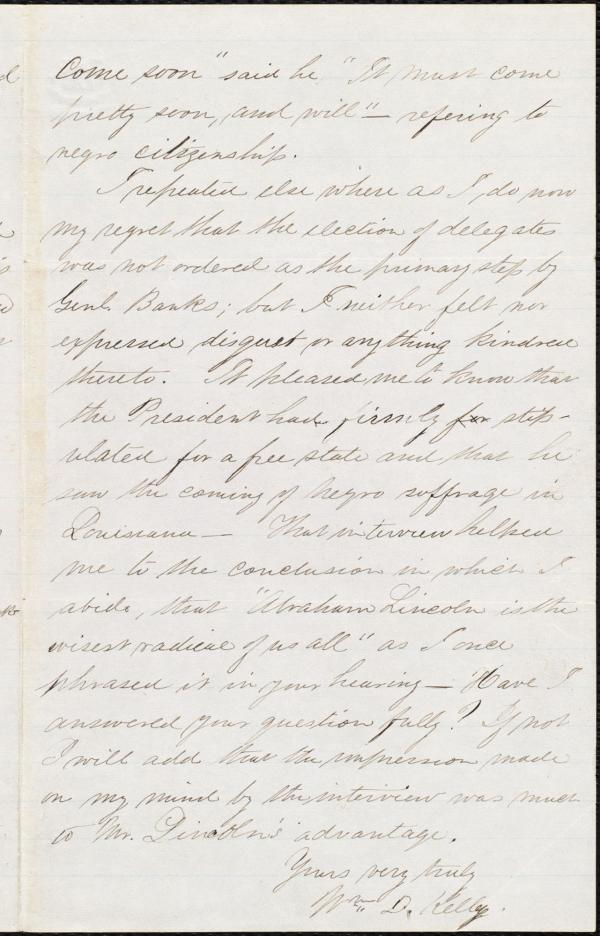 come soon" said he "It must come
pretty soon, and will" — refering to
negro citizenship.
I repeated else where as I do now
my regret that the election of delegates
was not ordered as the primary step by
Genl. Banks; but I neither felt nor
expressed disgust or anything kindred
thereto. It pleased me to know that
the President had firmly for stip-
ulated for a free state and that he
saw the coming of negro suffrage in
Louisiana — That interview helped
me to the conclusion in which I
abide, that "Abraham Lincoln is the
wisest radical of us all" as I once
phrased it in your hearing — Have I
answered your question fully? If not
I will add that the impression made
on my mind by the interview was much
to Mr. Lincoln's advantage.
Yours very truly
Wm. D. Kelley.